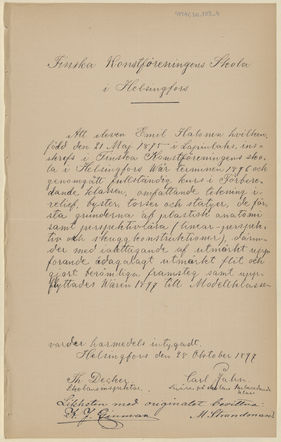 Finska Konstföreningens Skola
i Helsingfors
Att eleven Emil Halonen hvilken,
född den 21 Maj 1875 i Lapinlaks, ins-
krefs i Finska Konstföreningens sko-
la i Helsingfors Vår terminen 1896 och
genomgått fullständig kurs i Förbere-
dande klassen, omfattande teckning i
relief, byster, torser och statyer, de för-
sta grunderna af plastisk anatomi
samt perspektivlära (linear-perspek-
tiv och skuggkonstruktioner), därun-
der med iakttagande af utmärkt upp-
förande ådagalagt utmärkt flit och
gjort berömliga framsteg samt upp-
flyttades Våren 1897 till Modellklassen
varder härmedels intygadt.
Helsingfors den 28 Oktober 1897
Th. Decker Carl Jahn
Skolans inspektor. Lärare på skolans förberedande klass
Likheten med originalet bevittna:
M. Strandman